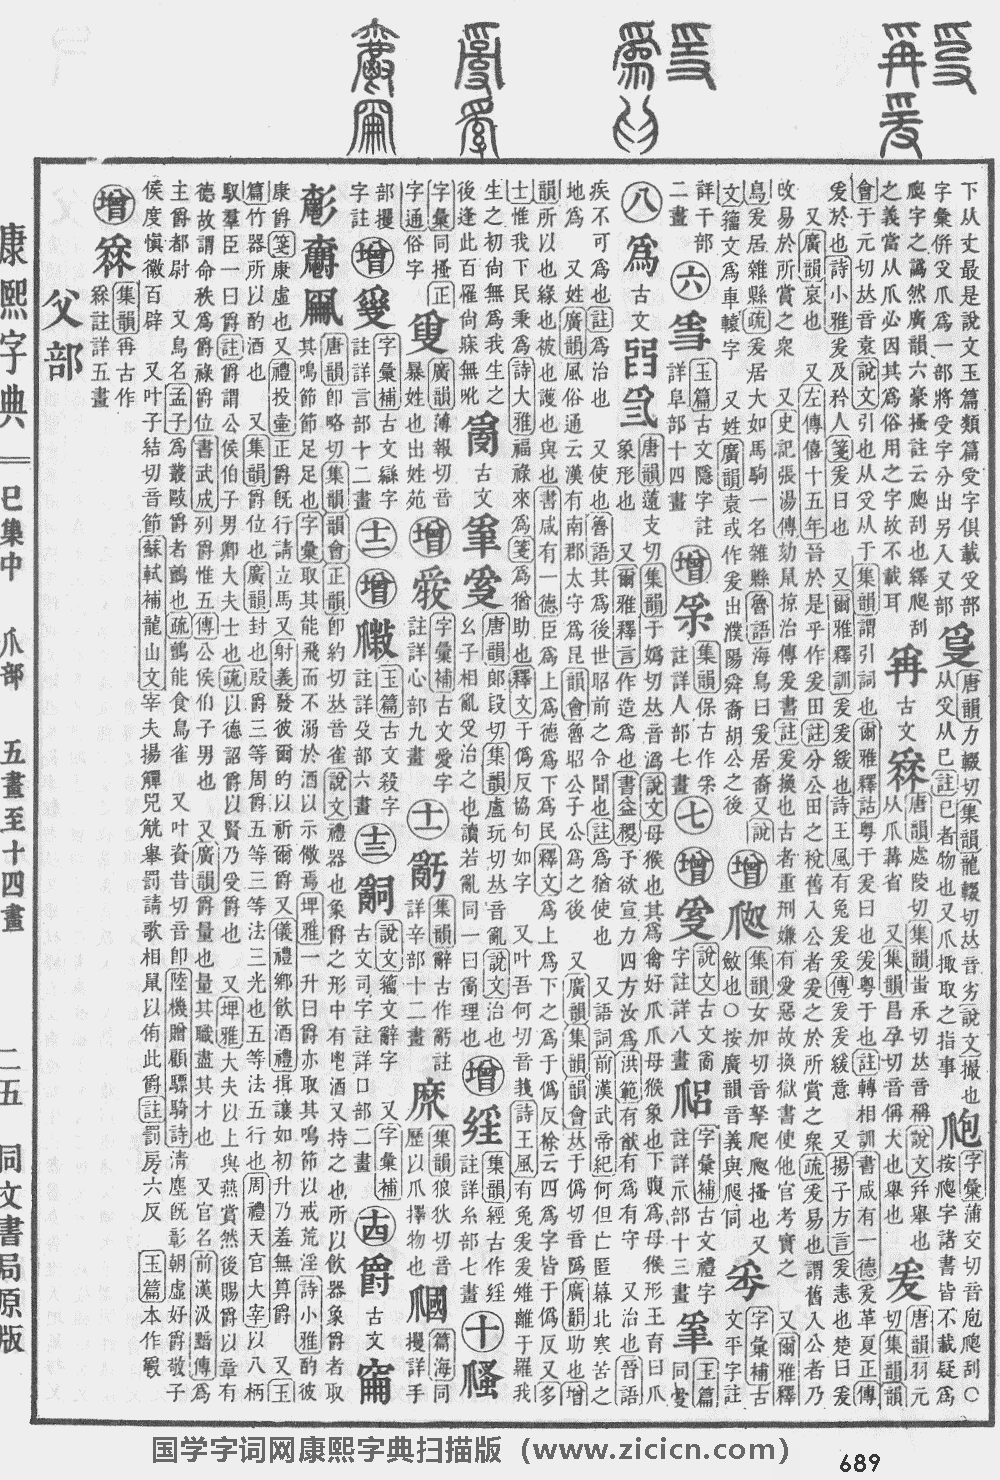 下从丈最是說文玉篇類篇受字俱載𠬪部
字彙倂爪爲一部將受字分出另入又部
爬字之譌然廣韻六豪搔註云爬刮也繹爬刮
之義當从爪必因其爲俗用之字故不載耳
唐韻力輟切集韻龍輟切𠀤音劣說文撮也
从已註已者物也又爪掫取之指事
爮字彙蒲交切音庖爬刮○
按爬字諸書皆不載疑爲
冉古文
唐韻處陵切集韻蚩承切𠀤音稱說文幷舉也
从爪冓省 又集韻昌孕切音偁大也舉也
爰唐韻羽元切集韻韻
會于元切𠀤音袁說文引也从于集韻謂引詞也爾雅釋詁粤于爰曰也爰粤于也註轉相訓書咸有一德爰革夏正傳
爰於也詩小雅爰及矜人箋爰曰也 又爾雅釋訓爰爰緩也詩王風有兔爰爰傳爰爰緩意 又揚子方言爰恚也楚曰爰
又廣韻哀也 又左傳僖十五年晉於是乎作爰田註分公田之稅舊入公者爰之於所賞之衆疏爰易也謂舊入公者乃
改易於所賞之衆 又史記張湯傳劾鼠掠治傳爰書註爰換也古者重刑嫌有愛惡故換獄書使他官考實之 又爾雅釋
鳥爰居雜縣疏爰居大如馬駒一名雜縣魯語海鳥曰爰居 又說
文籀文爲車轅字 又姓廣韻袁或作爰出濮陽舜裔胡公之後
增爬集韻女加切音拏爬搔也又
斂也○按廣韻音義與爬同
字彙補古文平字註
詳干部二畫
六
玉篇古文隱字註詳阜部十四畫
增
集韻保古作
註詳人部七畫
七增
說文古文
字註詳八畫
字彙補古文禮字
註詳示部十三畫
玉篇同愛
八爲古文
唐韻薳支切集韻于嬀切𠀤音潙說文母猴也其爲禽好爪爪母猴象也下腹爲母猴形王育曰爪
象形也 又爾雅釋言作造爲也書益稷予欲宣力四方汝爲洪範有猷有爲有守 又治也晉語
疾不可爲也註爲治也 又使也魯語其爲後世昭前之令聞也註爲猶使也 又語詞前漢武帝紀何但亡匿幕北寒苦之
地爲 又姓廣韻風俗通云漢有南郡太守爲昆韻會魯昭公子公爲之後 又廣韻集韻韻會𠀤于僞切音䧦廣韻助也增
韻所以也緣也被也護也與也書咸有一德臣爲上爲德爲下爲民釋文爲上爲下之爲于僞反徐云四爲字皆于僞反又多
士惟我下民秉爲詩大雅福祿來爲箋爲猶助也釋文于僞反協句如字 又叶吾何切音莪詩王風有兔爰爰雉離于羅我
生之初尙無爲我生之
後逢此百罹尙寐無吪
古文
唐韻郎段切集韻盧玩切𠀤音亂說文治也
幺子相亂𠬪治之也讀若亂同一曰理也
增
集韻經古作
註詳糸部七畫
十
字彙同搔正
字通俗字
廣韻薄報切音
暴姓也出姓苑
增
字彙補古文愛字
註詳心部九畫
十一
集韻辭古作註
詳辛部十二畫
集韻狼狄切音
歷以爪擇物也
篇海同
攫詳手
部攫字註
增
字彙補古文䜌字
註詳言部十二畫
十二增
玉篇古文殺字
註詳殳部六畫
十三
說文籀文辭字 又字彙補
古文司字註詳口部二畫
十四爵古文
唐韻卽略切集韻韻會正韻卽約切𠀤音雀說文禮器也象爵之形中有鬯酒又持之也所以飮器象爵者取
其鳴節節足足也字彙取其能飛而不溺於酒以示儆焉埤雅一升曰爵亦取其鳴節以戒荒淫詩小雅酌彼
康爵箋康虛也又禮投壺正爵旣行請立馬又射義發彼爾的以祈爾爵又儀禮鄕飮酒禮揖讓如初升乃羞無算爵 又玉
篇竹器所以酌酒也 又集韻爵位也廣韻封也殷爵三等周爵五等三等法三光也五等法五行也周禮天官大宰以八柄
馭羣臣一曰爵註爵謂公侯伯子男卿大夫士也疏以德詔爵以賢乃受爵也 又埤雅大夫以上與燕賞然後賜爵以章有
德故謂命秩爲爵祿爵位書武成列爵惟五傳公侯伯子男也 又廣韻爵量也量其職盡其才也 又官名前漢汲黯傳爲
主爵都尉 又鳥名孟子爲叢敺爵者鸇也疏鸇能食鳥雀 又叶資昔切音卽陸機贈顧驃騎詩淸塵旣彰朝虛好爵敬子
侯度愼徽百辟 又叶子結切音節蘇軾補龍山文宰夫揚觶兕觥舉罰請歌相鼠以侑此爵註罰房六反 玉篇本作
增
集韻再古作
註詳五畫
父部
康熙字典 巳集中 爪部 五畫至十四畫 二五 同文書局原版
国学字词网康熙字典扫描版（www.zicicn.com）
689